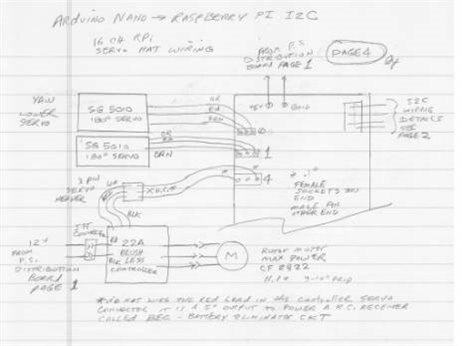 ARDUINO NANO → RASPBERRY PI I2C
16 CH RPi
SERVO HAT WIRING
FROM P.S.
DISTRIBUTION
BOARD PAGE 1
PAGE 4
YAW
LOWER
SERVO
SG 5010
180° SERVO
OR
RD
BRN
+5V
GND
0
I2C
WIRING
DETAILS
SEE
PAGE 2
SG 5010
180° SERVO
OR
RD
BRN
1
4
3 PIN
SERVO
HEADER
BLK
FEMALE
SOCKETS ON
END
MALE FOR
OTHER END
12V
FROM
P.S.
DISTRIBUTION
BOARD
PAGE 1
22A
BRUSH
LESS
CONTROLLER
M
ROTOR MOTOR
MAX POWER
CF 2822
* DO NOT WIRE THE RED LEAD IN THE CONTROLLER SERVO
CONNECTOR IT IS A 5V OUTPUT TO POWER A R.C. RECEIVER
CALLED BEC - BATTERY ELIMINATE CKT